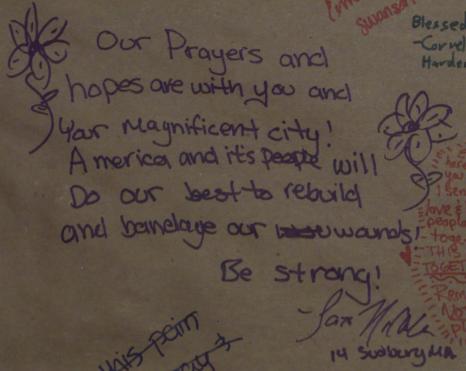 Our Prayers and
hopes are with you and
your Magnificent city!
America and it's people will
Do our best to rebuild
and bandage our wounds!
Be strong!
14 Sudbury MA
Swanson
Blessed
-Cornel
Harden
you
I ser
love &
people
toge
THIS
TOGET
Rem
No
this pain